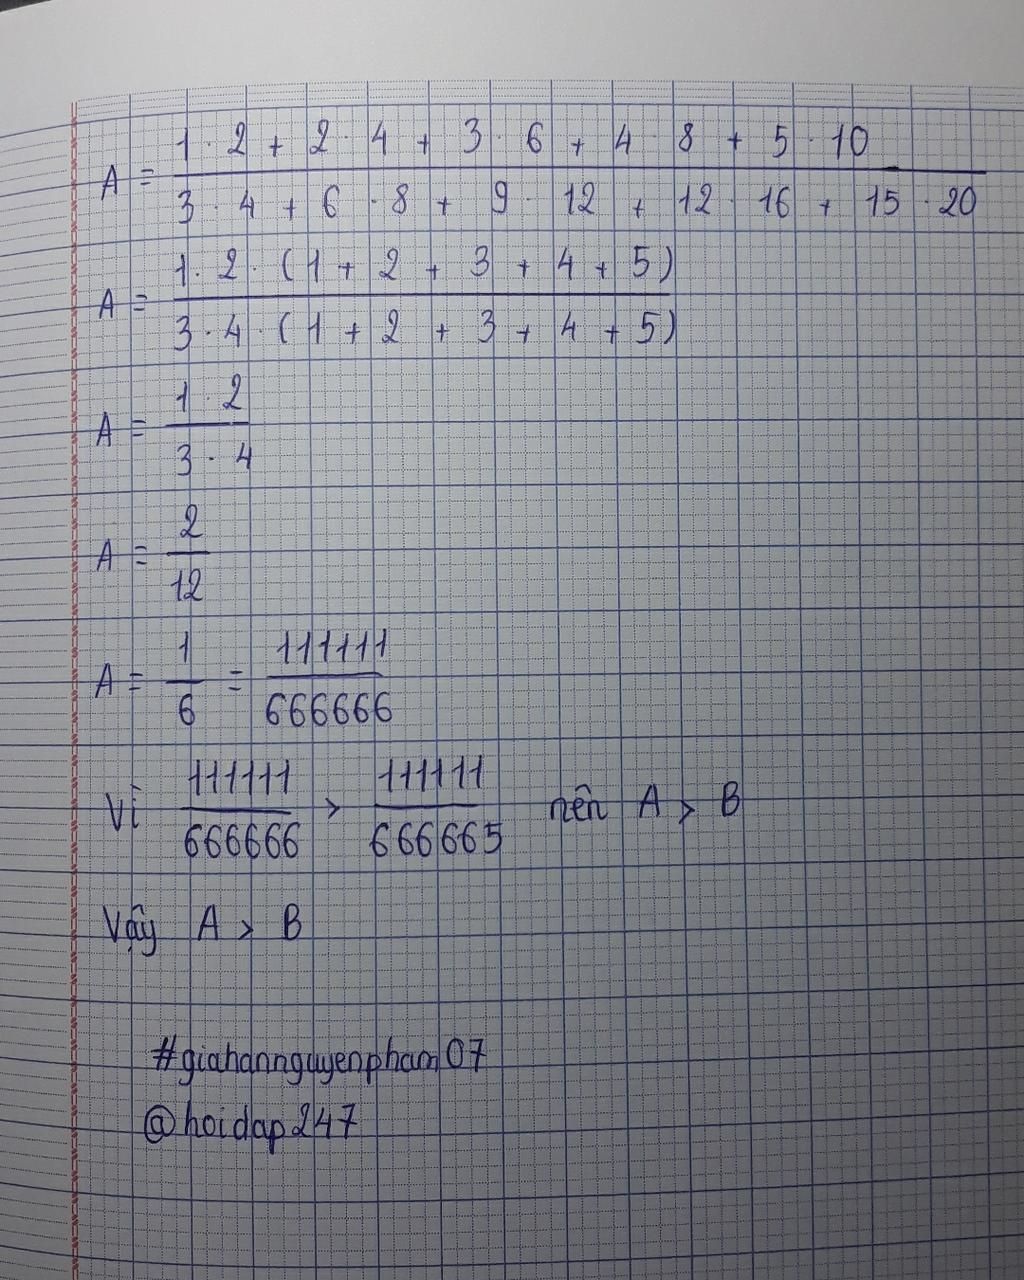 A = 1 · 2 + 2 · 4 + 3 · 6 + 4 · 8 + 5 · 10
3 · 4 + 6 · 8 + 9 · 12 + 12 · 16 + 15 · 20
A = 1 · 2 · (1 + 2 + 3 + 4 + 5)
3 · 4 · (1 + 2 + 3 + 4 + 5)
A = 1 · 2
3 · 4
A = 2
12
A = 1 = 111111
6 666666
Vì 111111 > 111111 nên A > B
666666 666665
Vậy A > B
#giahannguyenpham07
@hoidap247